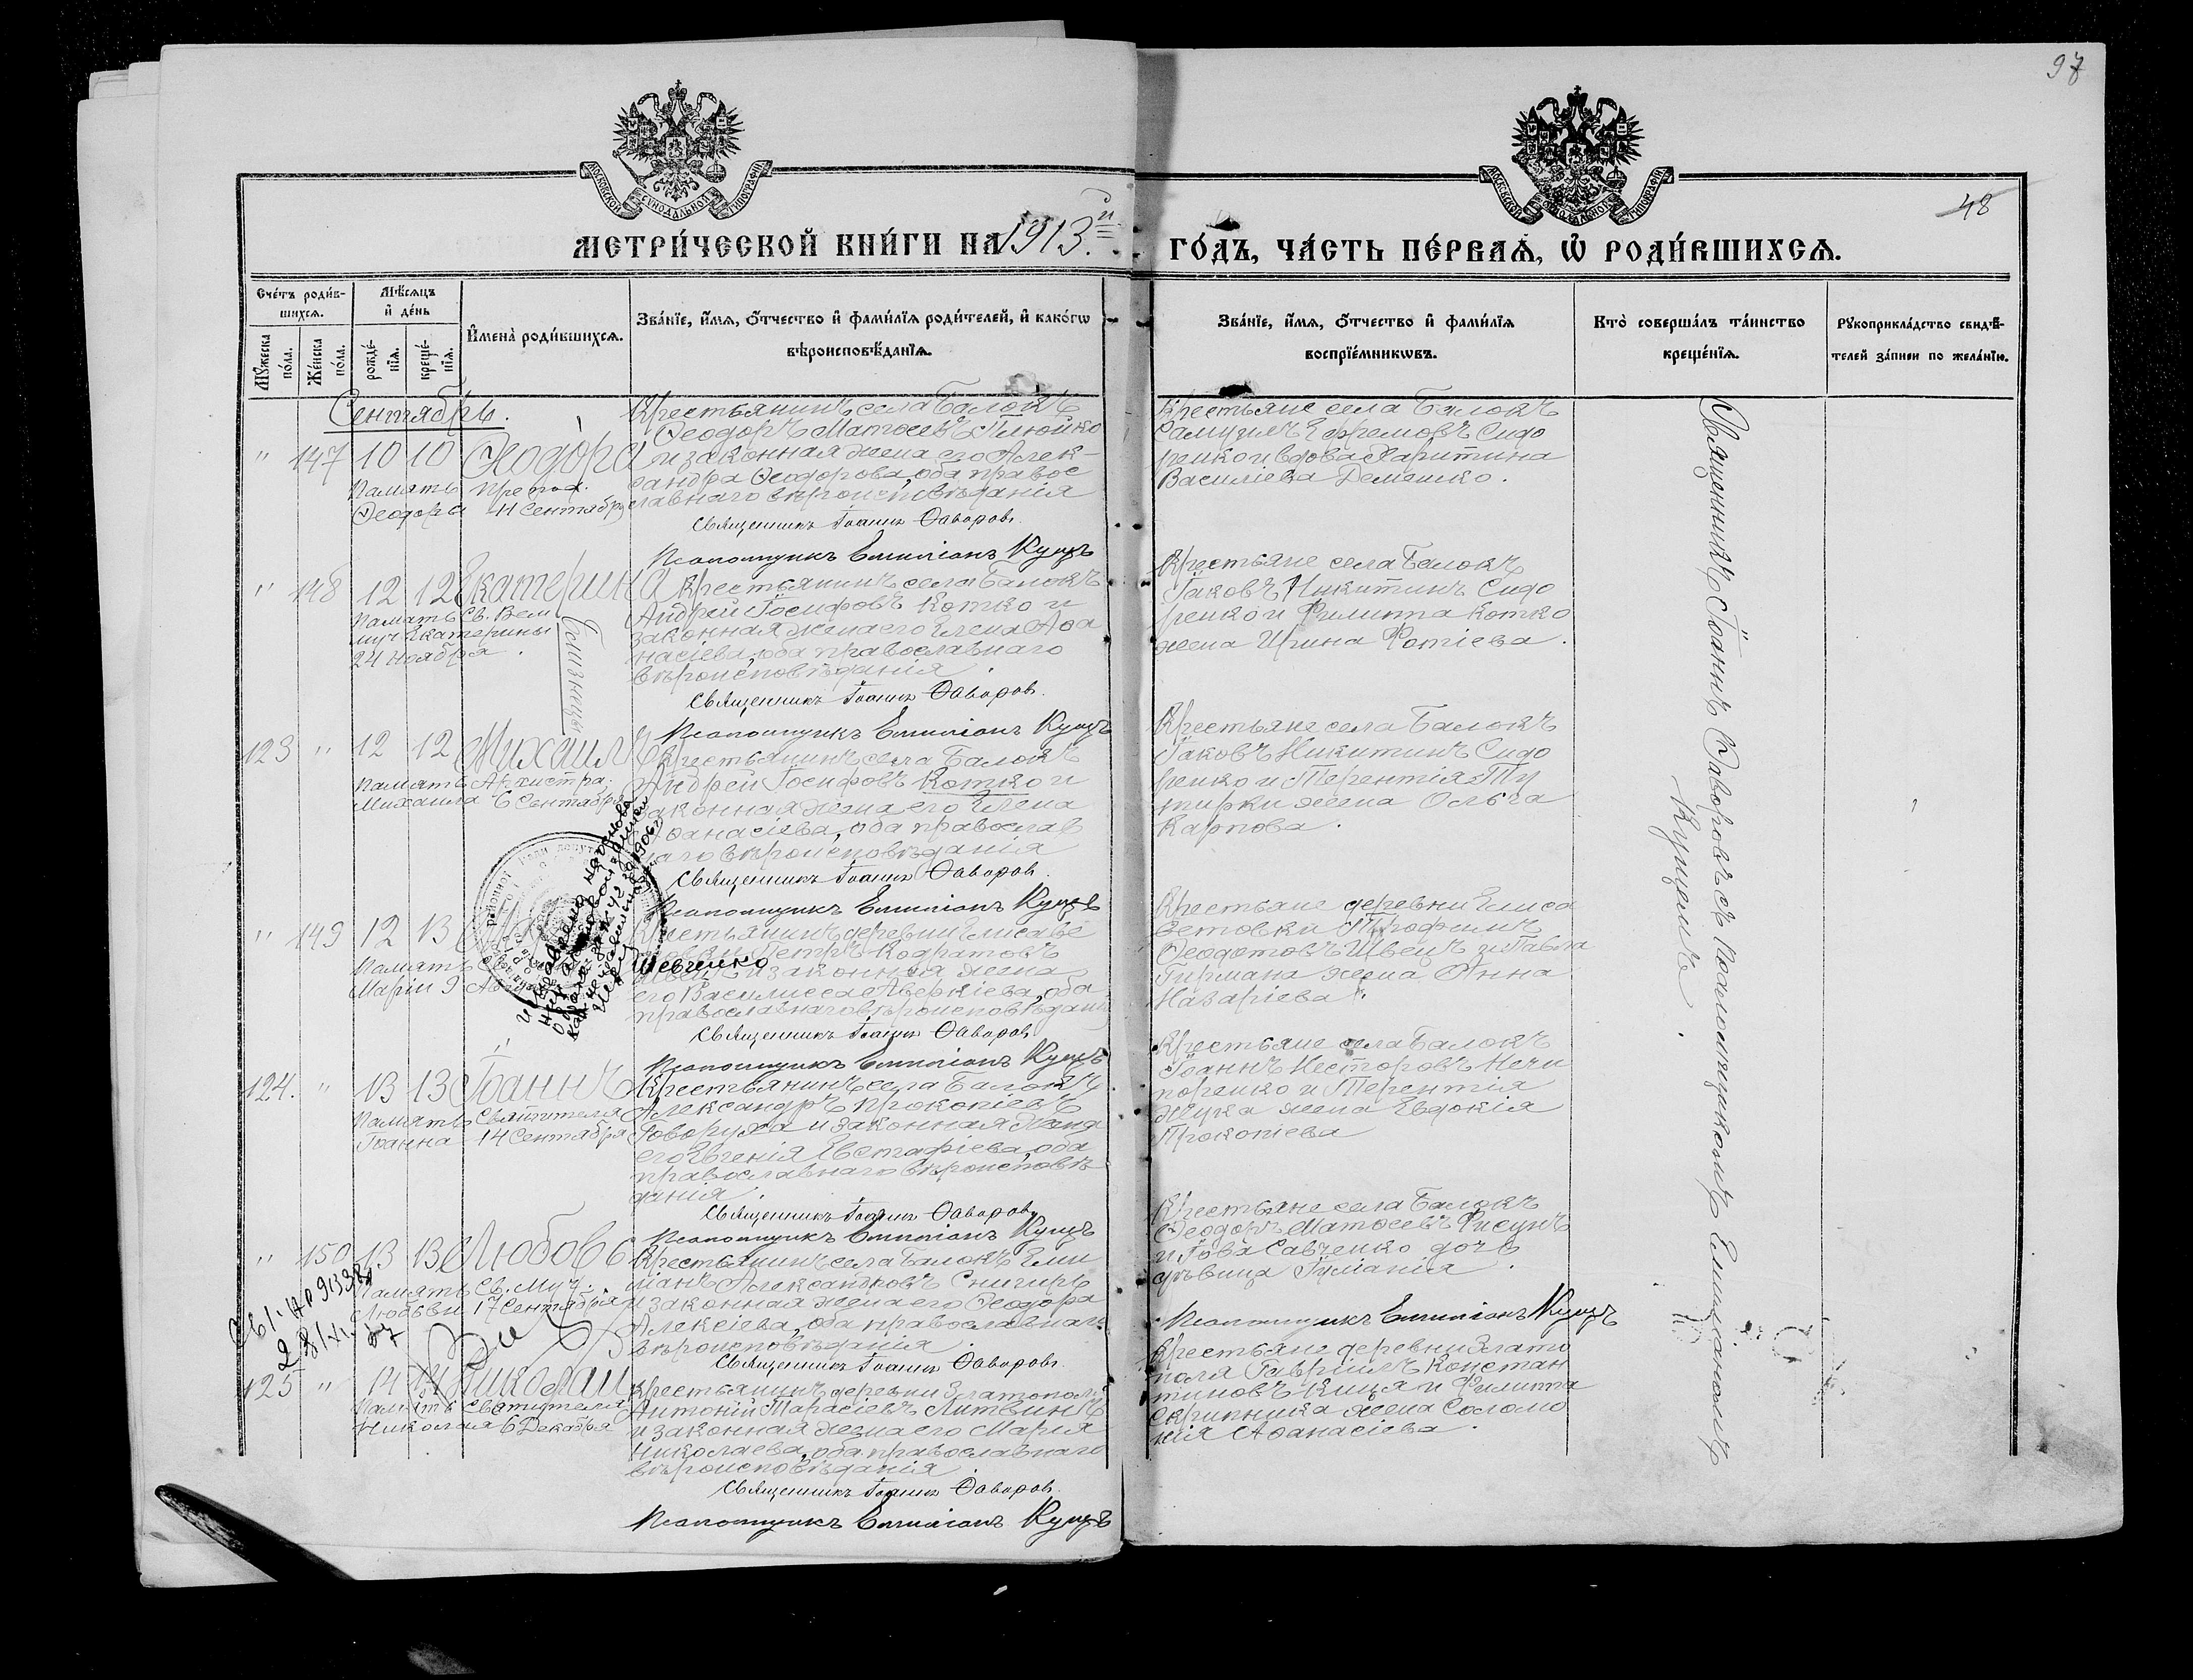 97
48
МОСКОВСКОЙ СѴНОДАЛЬНОЙ ТИПОГРАФІИ
МОСКОВСКОЙ СѴНОДАЛЬНОЙ ТИПОГРАФІИ
МЕТРИ́ЧЕСКОЙ КНИ́ГИ НА 1913й
ГО́ДЪ, ЧА́СТЬ ПЕ́РВАѦ, Ѡ҆ РОДИ́ВШИХСѦ.
Сче́тъ роди́в-
шихсѧ.
Мꙋ́жеска по́ла.
Же́нска по́ла.
Мѣ́сѧцъ
и҆ де́нь
рожде́-
нїѧ.
креще́-
нїѧ.
И҆мена̀ роди́вшихсѧ.
Зва́нїе, и҆́мѧ, ѻ҆́тчество и҆ фами́лїѧ роди́телей, и҆ како́гѡ
вѣроисповѣ́данїѧ.
Зва́нїе, и҆́мѧ, ѻ҆́тчество и҆ фами́лїѧ
воспрїе́мникѡвъ.
Кто̀ соверша́лъ та́инство
креще́нїѧ.
Рꙋкоприкла́дство свидѣ́-
телей за́писи по жела́нїю.
Сентябрь.
" 147 10 10 Ѳеодора
Память препод.
Ѳеодоры 11 Сентября
Крестьянинъ села Балокъ
Ѳеодоръ Матѳеевъ Плюйко
и законная жена его Алек-
сандра Ѳеодорова, оба правос
славнаго вѣроисповѣданія
Священникъ Іоаннъ Ѳаворовъ
Псаломщикъ Емиліанъ Куцъ
Крестьяне села Балокъ
Самуилъ Ефремовъ Сидо
ренко и вдова Харитина
Василіева Демешко.
" 148 12 12 Екатерина
Память Св. Вели
муч Екатерины
24 Ноября.
Близнецы
Крестьянинъ села Балокъ
Андрей Іосифовъ Котко и
законная жена его Елена Аѳа
насіева, оба православнаго
вѣроисповѣданія.
Священникъ Іоаннъ Ѳаворовъ.
Псаломщикъ Емиліанъ Куцъ
Крестьяне села Балокъ
Іаковъ Никитинъ Сидо
ренко и Филиппа Котко
жена Ирина Фотіева.
123 " 12 12 Михаилъ
Память Архистра.
Михаила 6 Сентября
Крестьянинъ села Балокъ
Андрей Іосифовъ Котко и
законная жена его Елена
Аѳанасіева, оба православ
наго вѣроисповѣданія
Священникъ Іоаннъ Ѳаворовъ.
Псаломщикъ Емиліанъ Куцъ
Крестьяне села Балокъ
Іаковъ Никитинъ Сидо
ренко и Терентія
жена Ольга
Карпова.
" 149 12 13
Память
Маріи 9
Крестьянинъ деревни Елисаве
Петръ Кодратовъ
Шевченко
и законная жена
его Василисса Аверкіева, оба
православнаго вѣроисповѣданія
Священникъ Іоаннъ Ѳаворовъ
Псаломщикъ Емиліанъ Куцъ
Крестьяне деревни Елиса
ветовки Трофимъ
Ѳеодотовъ Швецъ и Павла
Гирмана жена Анна
Назаріева.
124. " 13 13 Іоаннъ
Память Святителя
Іоанна 14 Сентября
Крестьянинъ села Балокъ
Александръ Прокопіевъ
Говоруха и законная жена
его Евгенія Евстафіева, оба
православнаго вѣроисповѣ
данія.
Священникъ Іоаннъ Ѳаворовъ
Псаломщикъ Емиліанъ Куцъ
Крестьяне села Балокъ
Іоаннъ Несторовъ Нечи
поренко и Терентія
Жука жена Евдокія
Прокопіева
" 150 13 13 Любовь
Память Св. Муч.
Любови 17 Сентября
Крестьянинъ села Балокъ Еми
ліанъ Александровъ Снигирь
и законная жена его Ѳеодора
Алексіева, оба православнаго
вѣроисповѣданія.
Священникъ Іоаннъ Ѳаворовъ.
Крестьяне села Балокъ
Ѳеодоръ Матѳеевъ Рисунъ
и Іова Савченко дочь
дѣвица Іуліанія.
Псаломщикъ Емиліанъ Куцъ
125 " 14 14 Николай
Память Святителя
Николая 6 Декабря
Крестьянинъ деревни Златополя
Антоній Тарасіевъ Литвинъ
и законная жена его Марія
Николаева, оба православнаго
вѣроисповѣданія.
Священникъ Іоаннъ Ѳаворовъ
Псаломщикъ Емиліанъ Куцъ
Крестьяне деревни Злато
поля Гавріилъ Констан
тиновъ Кица и Филиппа
Скрипника жена Соломо
нія Аѳанасіева.
Священникъ Іоаннъ Ѳаворовъ съ псаломщикомъ Емиліаномъ
Куцомъ.